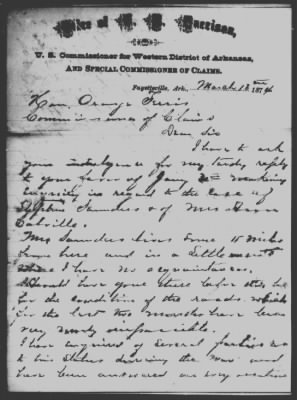 Office of
U. S. Commissioner for Western District of Arkansas,
AND SPECIAL COMMISSIONER OF CLAIMS.
Fayetteville, Ark., March 18th 1874
Hon. Orange Ferris
Commissioner of Claims
Dear Sir
I have to ask
your indulgence for my tardy reply
to your favor of Jany making
enquiry in regard to the case of
Saunders & of Mrs
Mrs Saunders lives some 15 miles
from here and in a settlement
where I have no acquaintances.
I would have gone there before this but
for the condition of the roads which
for the last two months have been
very nearly impassable.
I have inquired of several parties as
to his status during the war and
have been answered in every